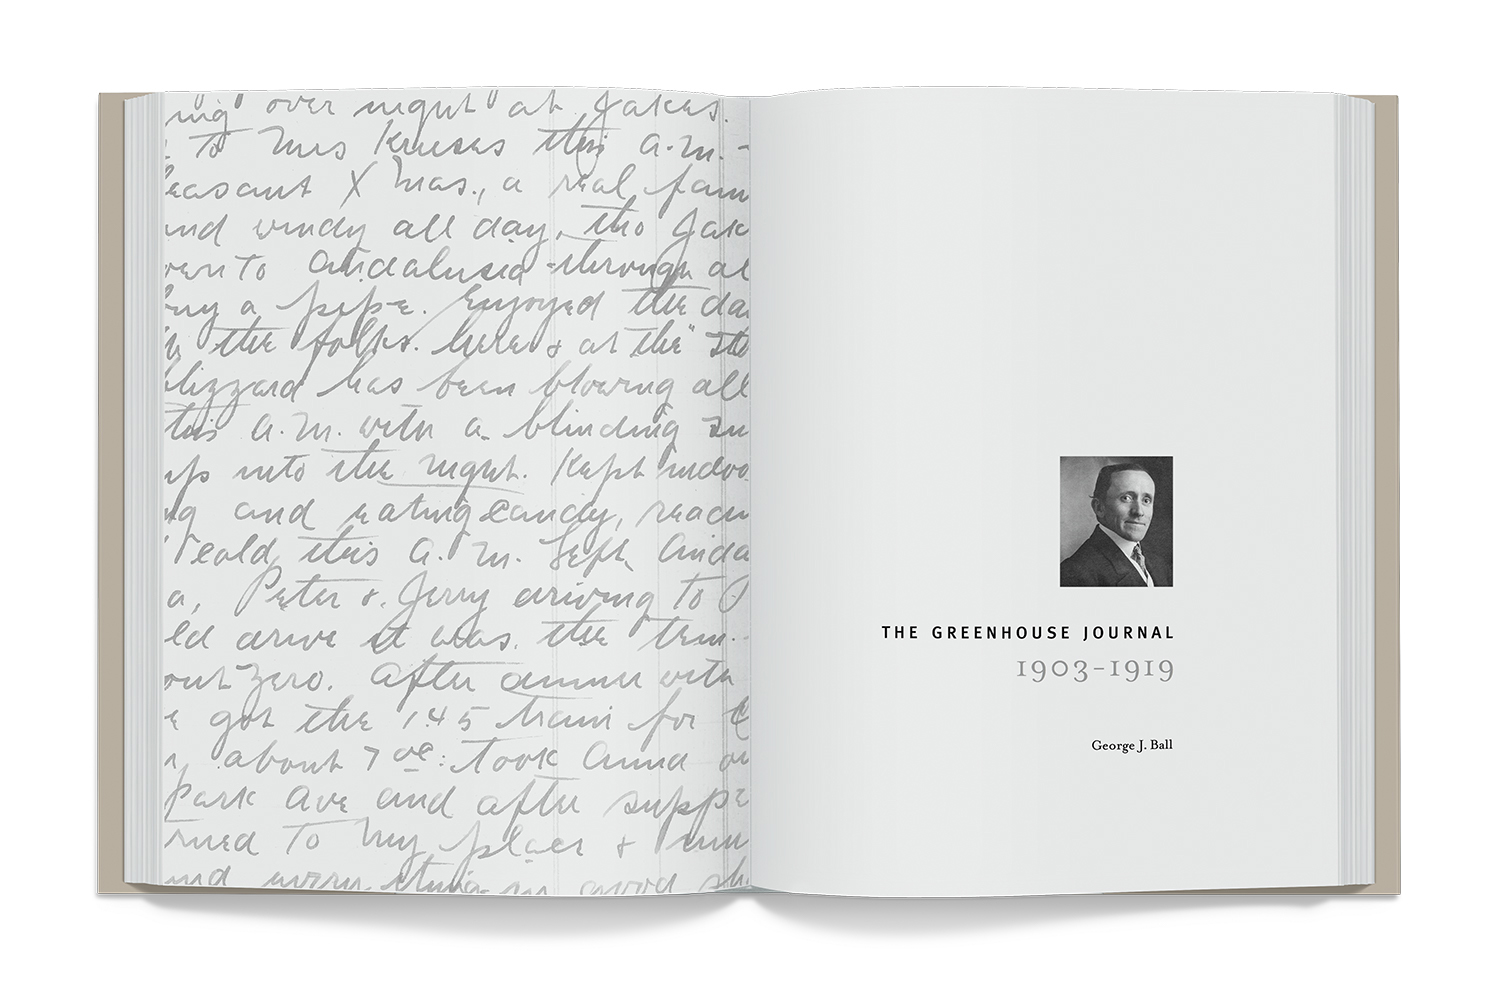 over night at Jakes.
to Mrs Kruses this a.m. -
easant X mas., a real fam
and windy all day, tho Jak
to Andalusia through al
buy a pipe. Enjoyed the da
the folks. here & at the "sto
blizzard has been blowing all
this a.m. with a blinding sn
up into the night. Kept indoo
ng and eating candy, readin
cold this a.m. Left Anda
a, Peter & Jerry driving to
ld drive it was. the tem-
out zero. After dinner with
e got the 1.45 train for C
about 7 oc: took Anna
Park Ave and after suppe
rned to my place &
and everything in good sh
THE GREENHOUSE JOURNAL
1903–1919
George J. Ball